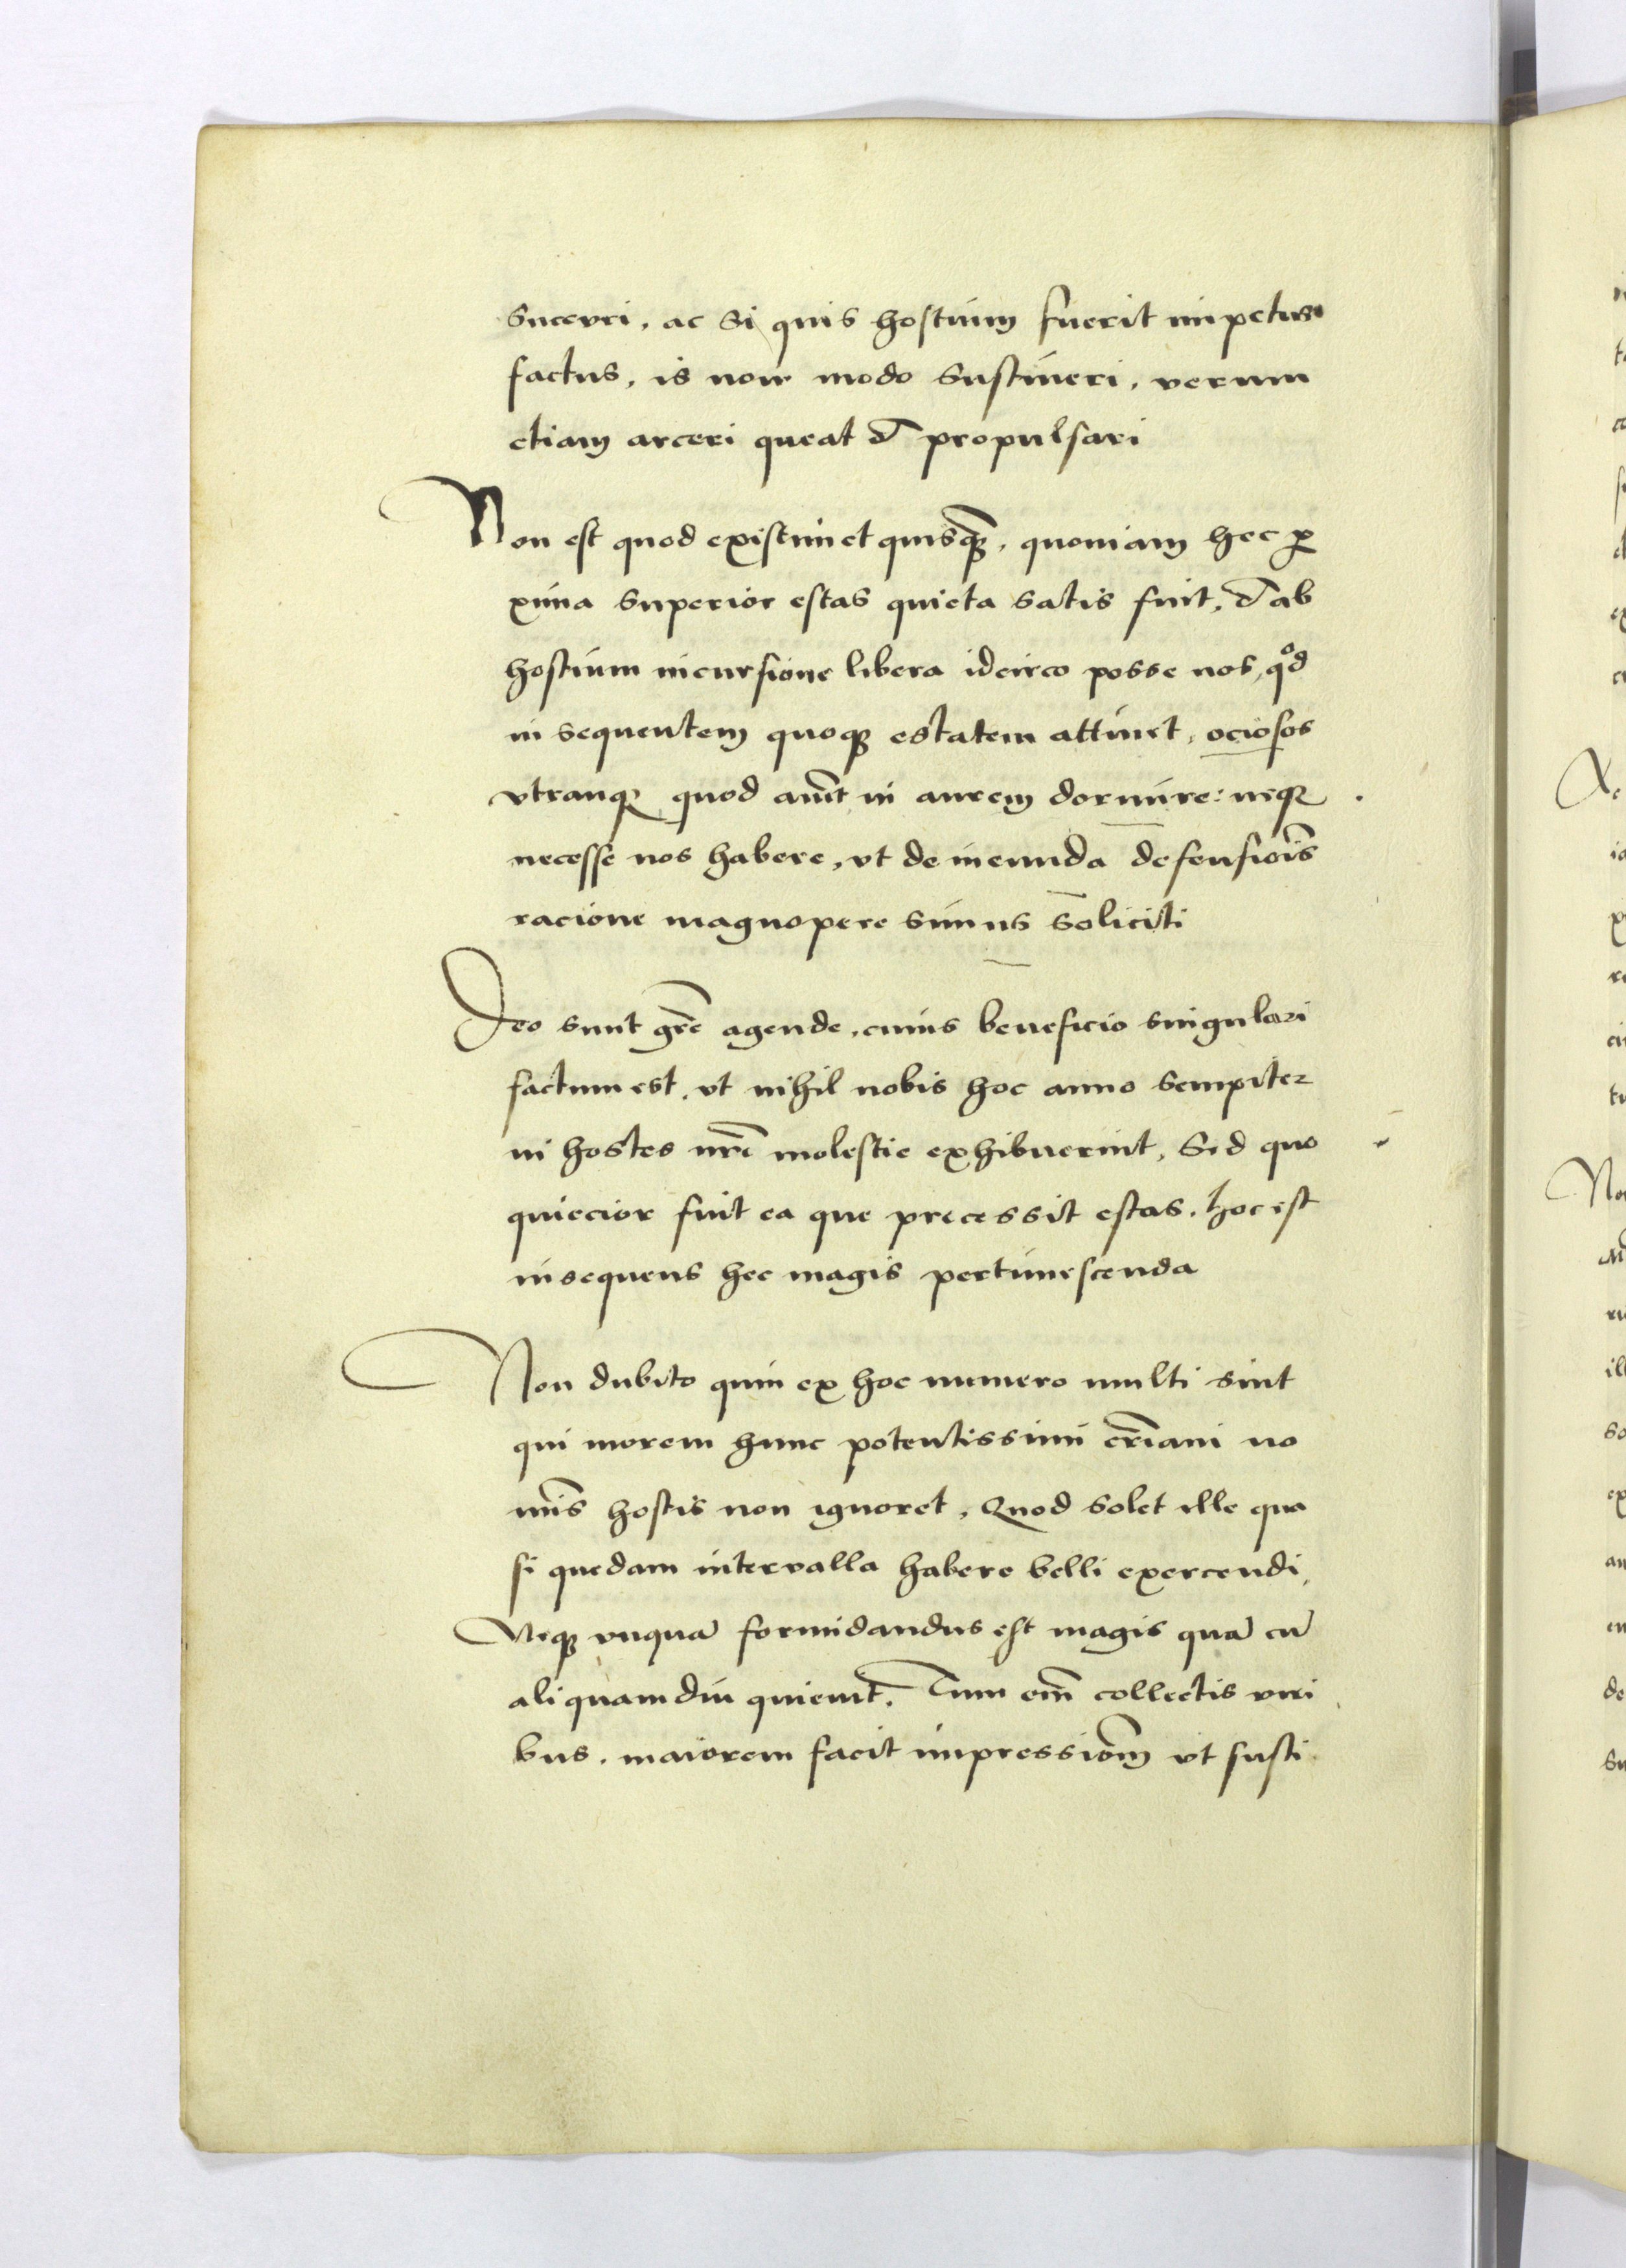 succurri, ac si quis hostium fuerit impetus
factus, is non modo sustineri, verum
etiam arceri queat et propulsari
Non est quod existimet quisq̃, quoniam hec p
xima superior estas quieta satis fuit, et ab
hostium incursione libera idcirco posse nos, qod
in sequentem quoqꝫ estatem attinet, ociosos
vtranqꝫ quod aiũt in aurem dormire: neqꝫ
necesse nos habere, vt de ineunda defensiois̃
racione magnopere simus soliciti
Deo sunt gr̃e agende, cuius beneficio singulari
factum est, vt nihil nobis hoc anno sempiter
ni hostes nr̃i molestie exhibuerint, Sed quo
quiecior fuit ea que precessit estas, hoc est
insequens hec magis pertimescenda
Non dubito quin ex hoc numero multi sint
qui morem hunc potentissimi cr̃iani no
mĩs hostis non ignoret, Quod solet ille qua
si quedam intervalla habere belli exercendi,
Neqꝫ vnquã formidandus est magis quã cũ
aliquamdiu quieuit. Tum em̃ collectis viri
bus, maiorem facit impressiom̃ vt susti